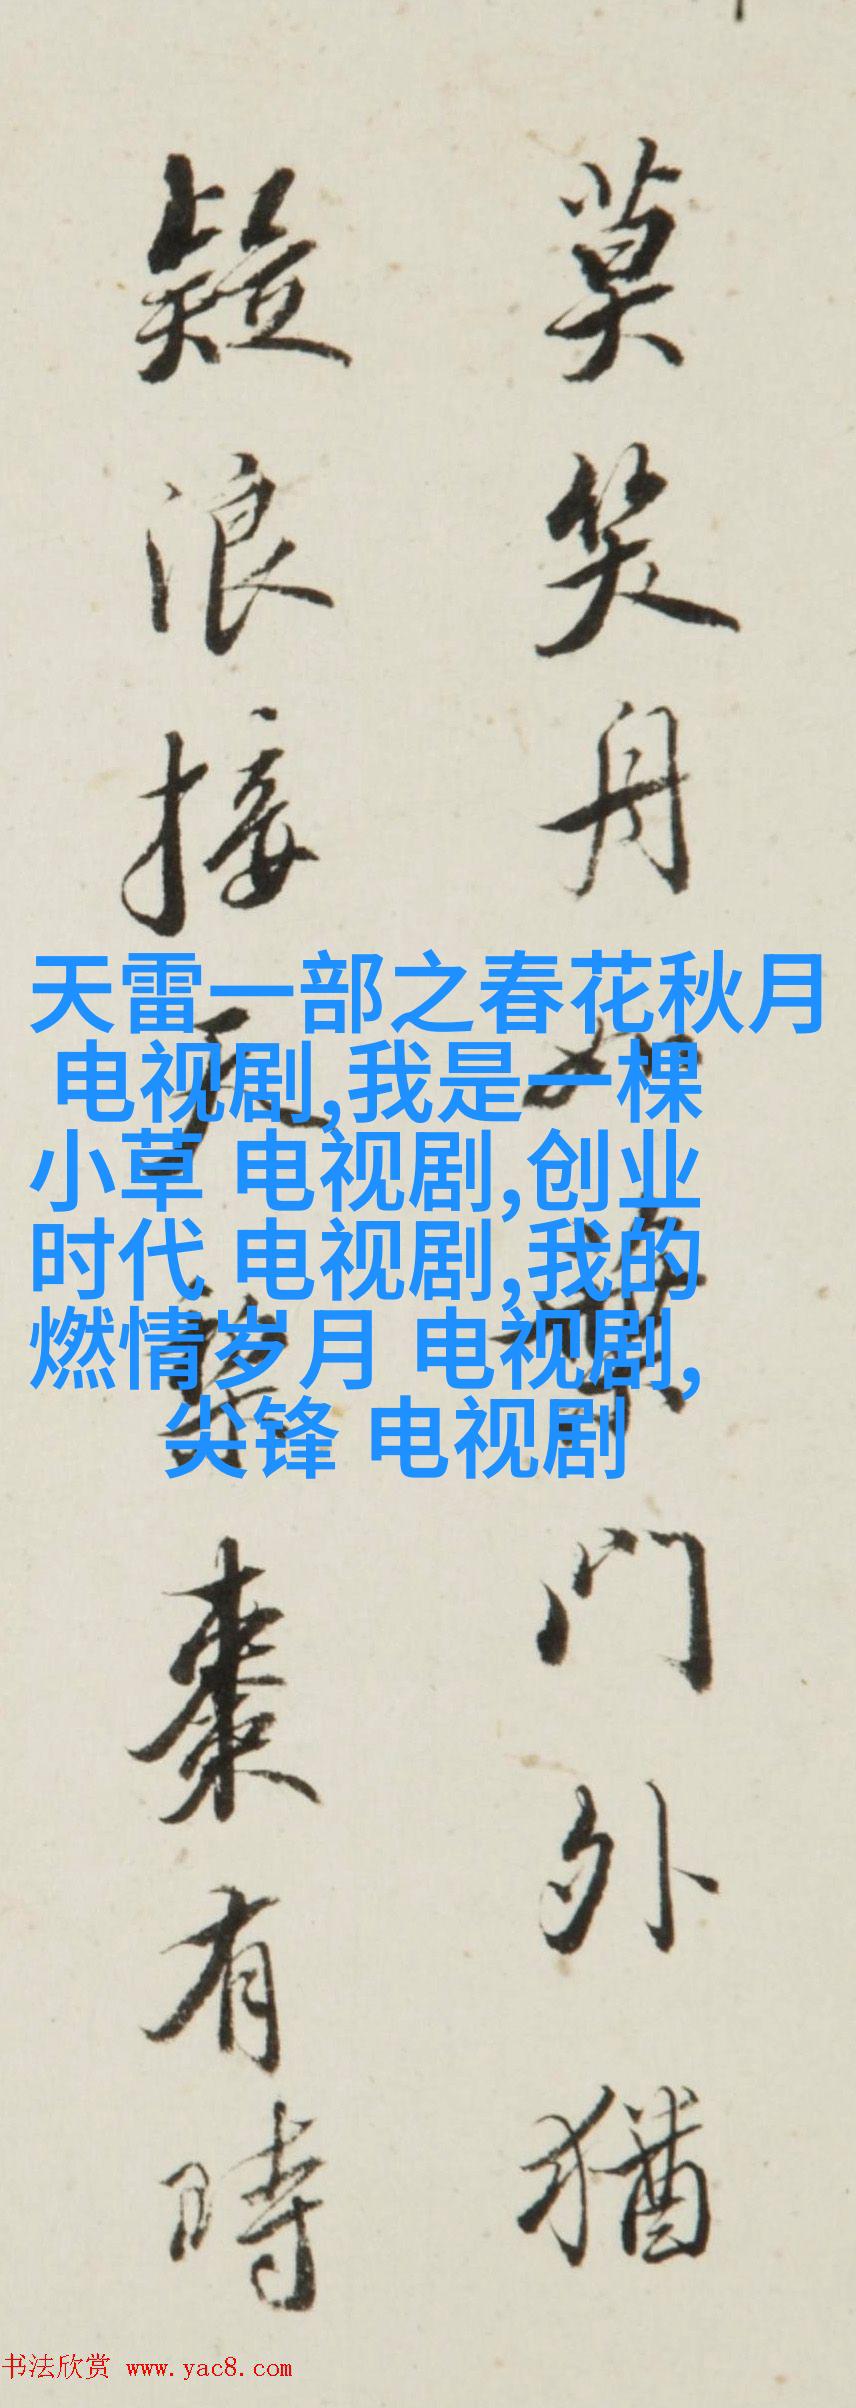 莫笑舟如葉門外猶
疑浪接天梨棗有時
天雷一部之春花秋月
电视剧,我是一棵
小草 电视剧,创业
时代 电视剧,我的
燃情岁月 电视剧,
尖锋 电视剧
书法欣赏 www.yac8.com